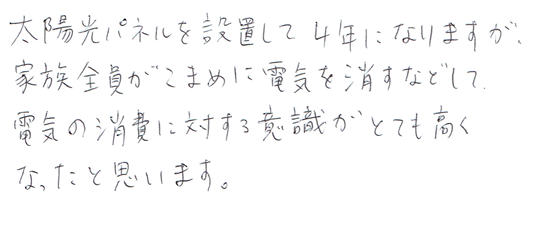 太陽光パネルを設置して4年になりますが、
家族全員がこまめに電気を消すなどして、
電気の消費に対する意識がとても高く
なったと思います。